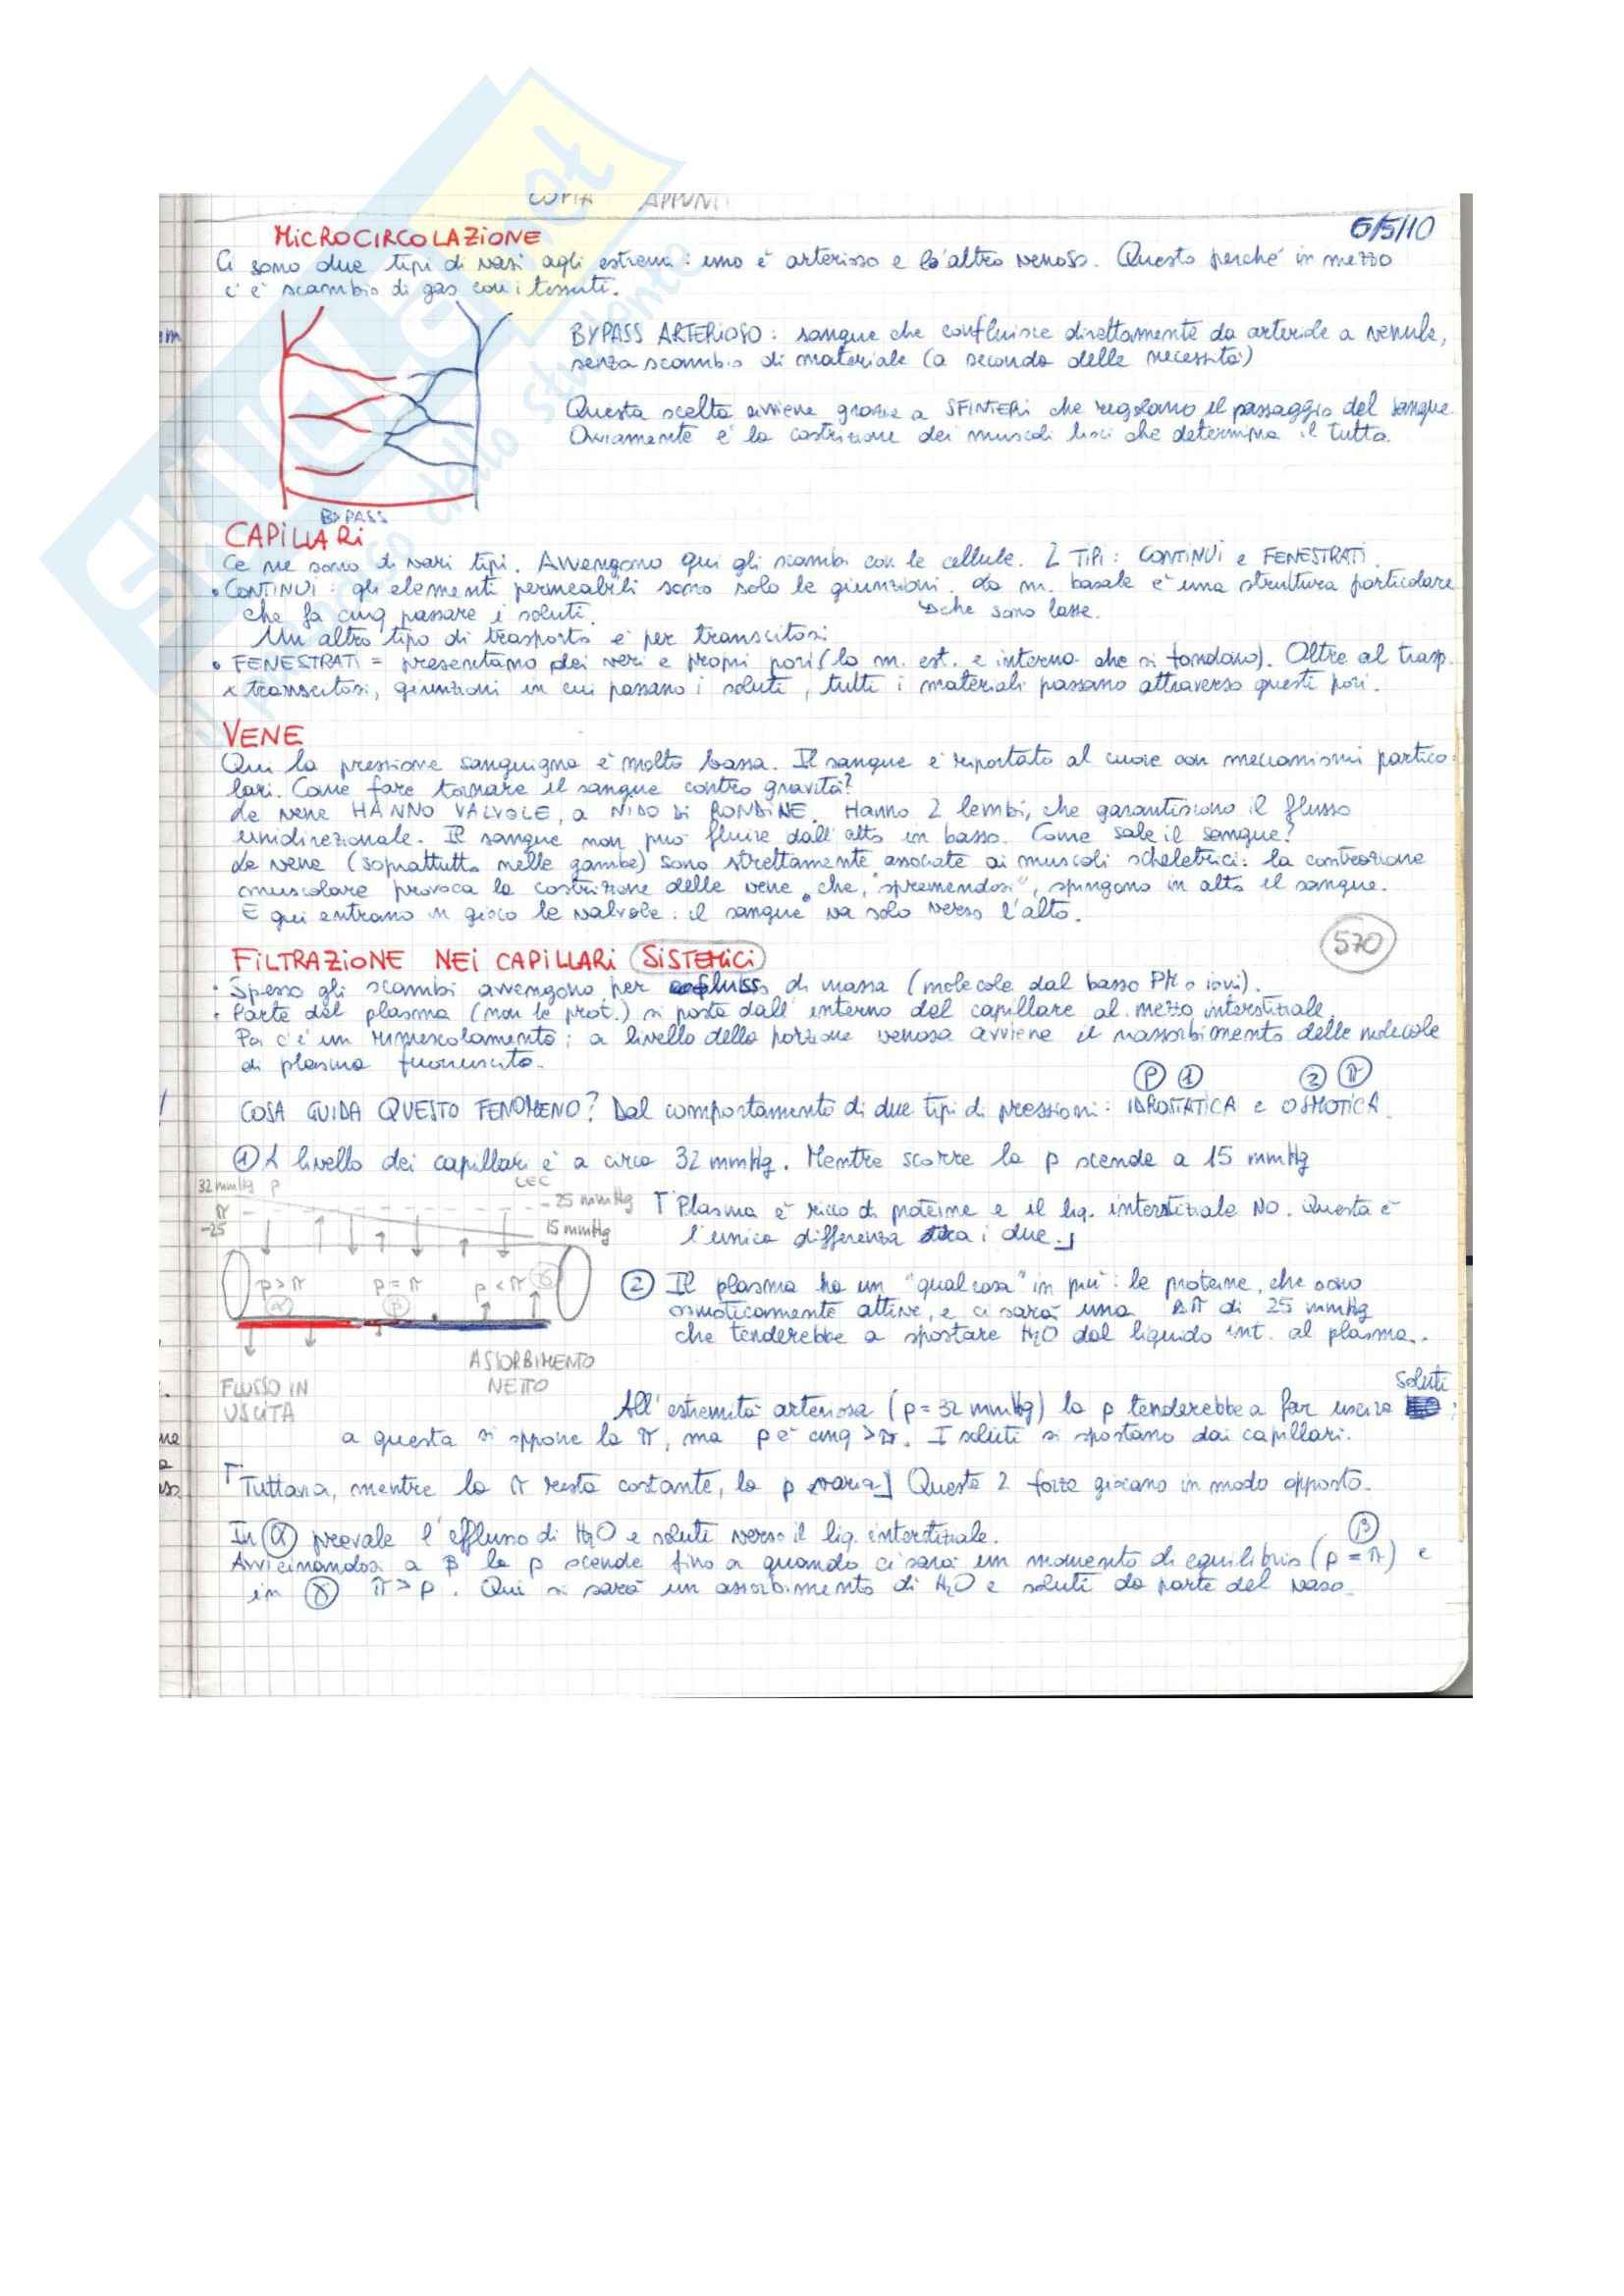 COPIA APPUNTI
6/5/10
MiCROCIRCOLAZiONE
Ci sono due tipi di vasi agli estremi: uno è arterioso e l'altro venoso. Questo perché in mezzo
c'è scambio di gas con i tessuti.
BYPASS ARTERIOSO: sangue che confluisce direttamente da arteriole a venule,
senza scambio di materiale (a seconda delle necessità)
Questa scelta avviene grazie a SFINTERI che regolano il passaggio del sangue.
Ovviamente è la costrizione dei muscoli lisci che determina il tutto.
BYPASS
CAPILLARi
Ce ne sono di vari tipi. Avvengono qui gli scambi con le cellule. 2 TiPi: CONTINUI e FENESTRATI.
• CONTINUI: gli elementi permeabili sono solo le giunzioni. La m. basale è una struttura particolare
che fa cmq passare i soluti. ↳ che sono lasse.
Un altro tipo di trasporto è per transcitosi
• FENESTRATI = presentano dei veri e propri pori (la m. est. e interna che si fondono). Oltre al trasp.
x transcitosi, giunzioni in cui passano i soluti, tutti i materiali passano attraverso questi pori.
VENE
Qui la pressione sanguigna è molto bassa. Il sangue è riportato al cuore con meccanismi partico-
lari. Come fare tornare il sangue contro gravità?
Le vene HANNO VALVOLE, a NIDO DI RONDINE. Hanno 2 lembi, che garantiscono il flusso
unidirezionale. Il sangue non può fluire dall'alto in basso. Come sale il sangue?
Le vene (soprattutto nelle gambe) sono strettamente associate ai muscoli scheletrici: la contrazione
muscolare provoca la costrizione delle vene che, "spremendosi", spingono in alto il sangue.
E qui entrano in gioco le valvole: il sangue va solo verso l'alto.
570
FiLTRAZiONE NEi CAPiLLARi SiSTEMiCi
• Spesso gli scambi avvengono per flusso di massa (molecole dal basso PM o ioni).
• Parte del plasma (non le prot.) si posta dall'interno del capillare al mezzo interstiziale.
Poi c'è un rimescolamento: a livello della porzione venosa avviene il riassorbimento delle molecole
di plasma fuoriuscito.
P 1 2 π
COSA GUIDA QUESTO FENOMENO? Dal comportamento di due tipi di pressioni: IDROSTATICA e OSMOTICA.
1 A livello dei capillari è a circa 32 mmHg. Mentre scorre la p scende a 15 mmHg
32 mmHg p
LEC
π
-25
-25 mmHg
15 mmHg
p > π
p = π
p < π
α
β
γ
FLUSSO IN
USCITA
ASSORBIMENTO
NETTO
⌈Plasma è ricco di proteine e il liq. interstiziale NO. Questa è
l'unica differenza tra i due.⌋
2 Il plasma ha un "qualcosa" in più: le proteine, che sono
osmoticamente attive, e ci sarà una Δπ di 25 mmHg
che tenderebbe a spostare H₂O dal liquido int. al plasma.
All'estremità arteriosa (p = 32 mmHg) la p tenderebbe a far uscire soluti;
a questa si oppone la π, ma p è cmq > π. I soluti si spostano dai capillari.
⌈Tuttavia, mentre la π resta costante, la p varia⌋ Queste 2 forze giocano in modo opposto.
In α prevale l'efflusso di H₂O e soluti verso il liq. interstiziale.
Avvicinandosi a β la p scende fino a quando ci sarà un momento di equilibrio (p = π) e
β
in γ π > p. Qui si sarà un assorbimento di H₂O e soluti da parte del vaso.